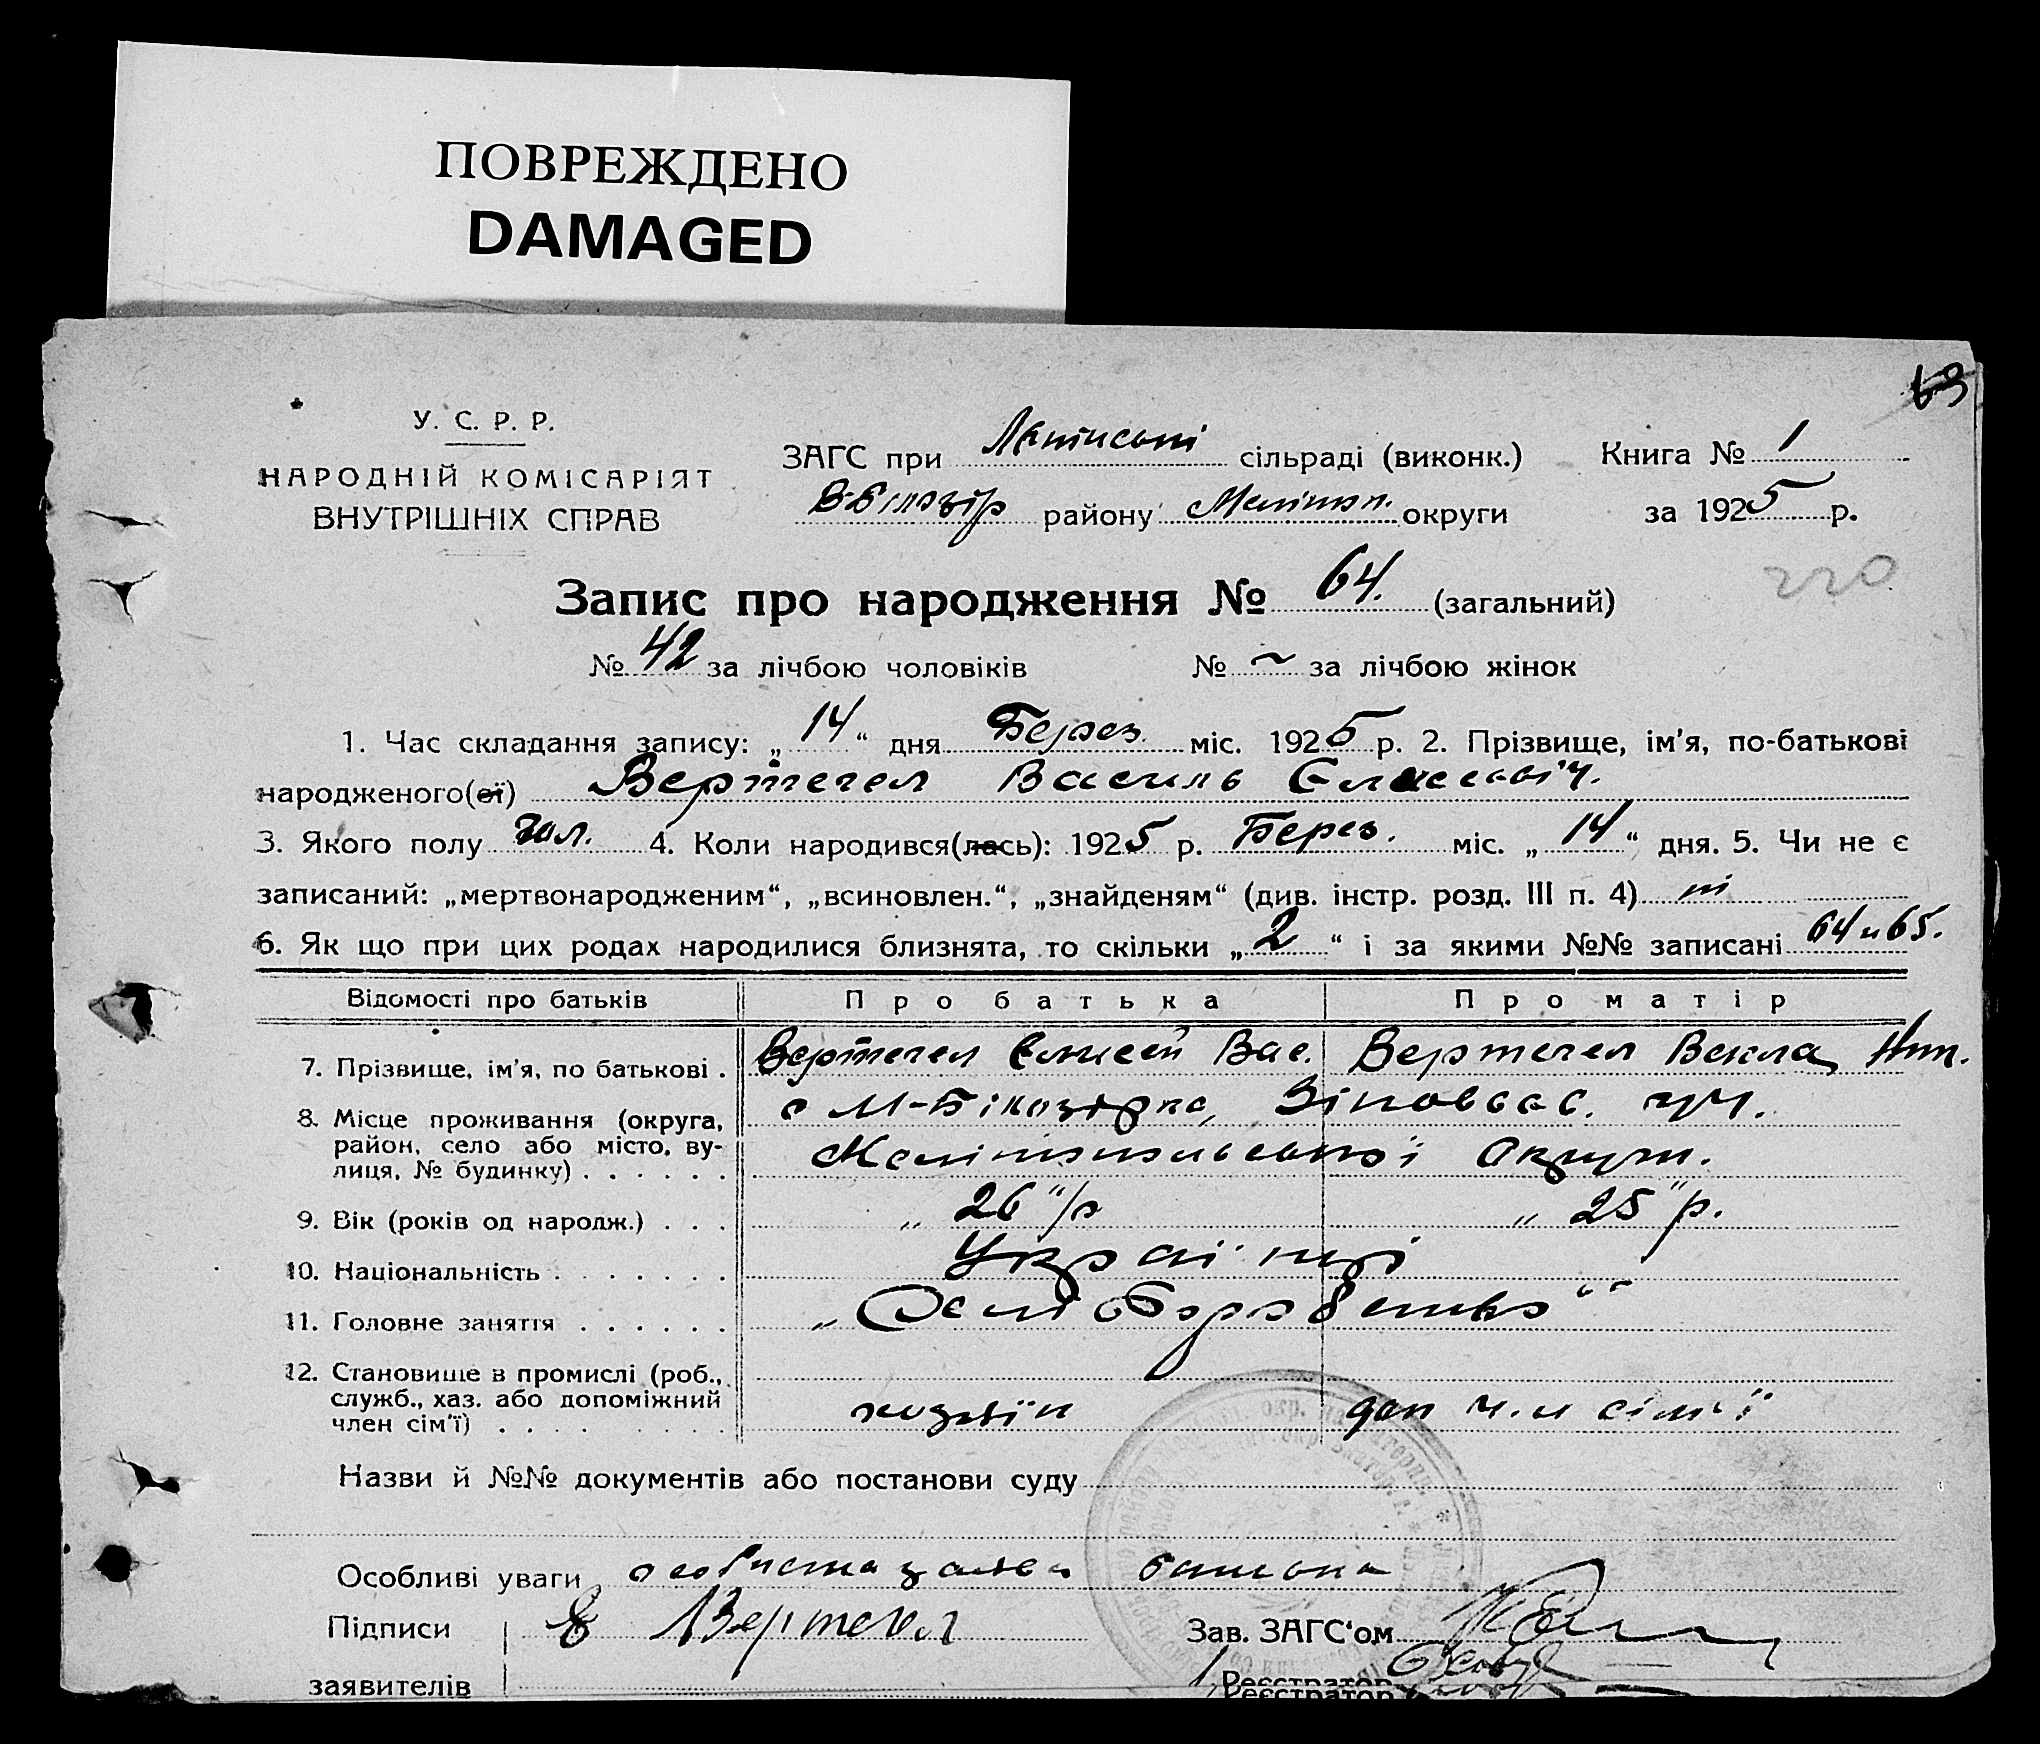 ПОВРЕЖДЕНО
DAMAGED
63
У. С. Р. Р.
НАРОДНІЙ КОМІСАРІЯТ
ВНУТРІШНІХ СПРАВ
ЗАГС при сільраді (виконк.) Книга № 1
В-Білозір району Мелітоп. округи за 1925 р.
220
Запис про народження № 64. (загальний)
№ 42 за лічбою чоловіків № ~ за лічбою жінок
1. Час складання запису: „ 14 “ дня Берез. міс. 1925 р. 2. Прізвище, ім'я, по-батькові
народженого(ої) Вертегел Василь Єлисеєвіч.
3. Якого полу чол. 4. Коли народився(лась): 1925 р. Берез. міс. „ 14 “ дня. 5. Чи не є
записаний: „мертвонародженим“, „всиновлен.“, „знайденям“ (див. інстр. розд. III п. 4) ні
6. Як що при цих родах народилися близнята, то скільки „ 2 “ і за якими №№ записані 64 и 65.
Відомості про батьків Про батька Про матір
7. Прізвище, ім'я, по батькові . Вертегел Єлисей Вас. Вертегел Векла
8. Місце проживання (округа, с М-Білозірка,
район, село або місто, ву- Меліпопольської Округи.
лиця, № будинку) . . . . . .
9. Вік (років од народж.) . . . „ 26 “ р „ 25 “ р.
10. Національність . . . . . . . Українці
11. Головне заняття . . . . . . „ Сел
12. Становище в промислі (роб.,
служб., хаз. або допоміжний хозяїн доп чл сім'ї
член сім'ї) . . . .
Назви й №№ документів або постанови суду
Особливі уваги особиста заява батька
Підписи Вертегел Зав. ЗАГС'ом
заявителів Реєстратор
Реєстратор